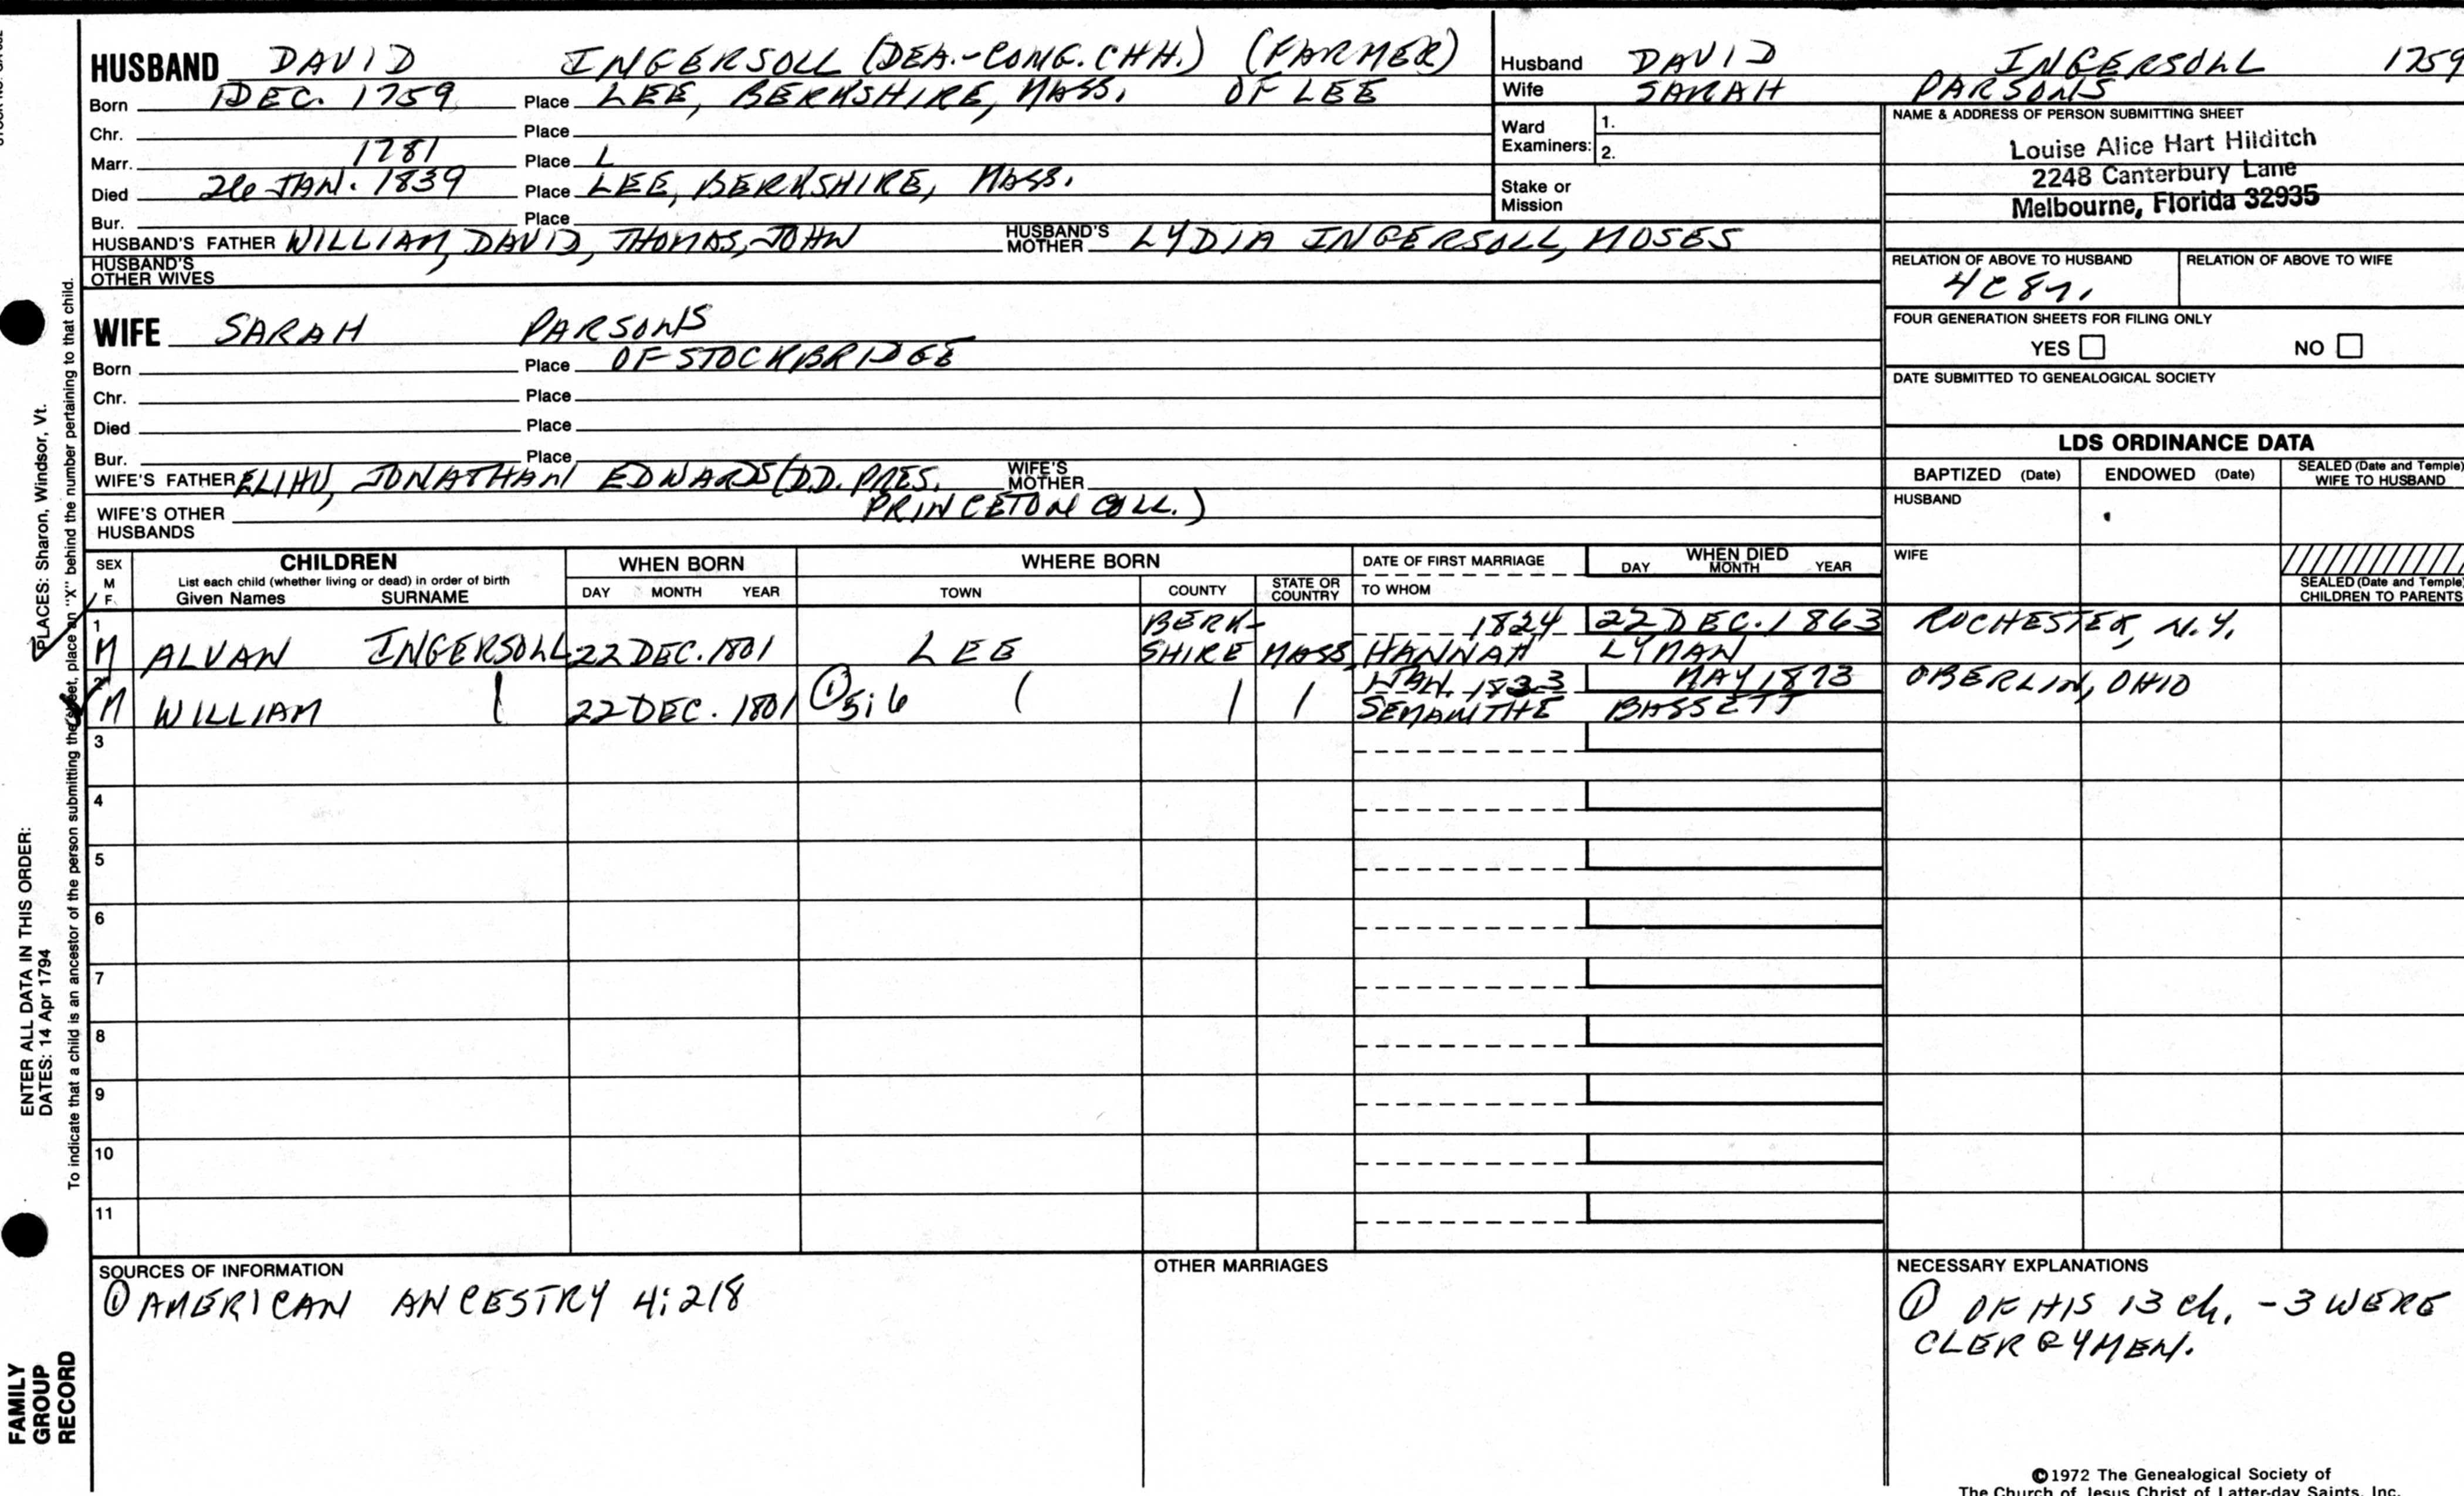 HUSBAND DAVID INGERSOLL (DEA.-CONG. CHH.) (FARMER)
Born 1 DEC. 1759 Place LEE, BERKSHIRE, MASS. OF LEE
Chr. Place
Marr. 1781 Place L
Died 26 JAN. 1839 Place LEE, BERKSHIRE, MASS.
Bur. Place
HUSBAND'S FATHER WILLIAM, DAVID, THOMAS, JOHN HUSBAND'S MOTHER LYDIA INGERSOLL, MOSES
HUSBAND'S OTHER WIVES
Husband DAVID INGERSOLL 1759
Wife SARAH PARSONS
Ward Examiners: 1.
2.
Stake or Mission
NAME & ADDRESS OF PERSON SUBMITTING SHEET
Louise Alice Hart Hilditch
2248 Canterbury Lane
Melbourne, Florida 32935
RELATION OF ABOVE TO HUSBAND RELATION OF ABOVE TO WIFE
4C 8r.
FOUR GENERATION SHEETS FOR FILING ONLY
YES NO
DATE SUBMITTED TO GENEALOGICAL SOCIETY
WIFE SARAH PARSONS
Born Place OF STOCKBRIDGE
Chr. Place
Died Place
Bur. Place
WIFE'S FATHER ELIHU, JONATHAN EDWARDS (D.D. PRES. WIFE'S MOTHER
PRINCETON COLL.)
WIFE'S OTHER HUSBANDS
LDS ORDINANCE DATA
BAPTIZED (Date) ENDOWED (Date) SEALED (Date and Temple) WIFE TO HUSBAND
HUSBAND
WIFE
SEALED (Date and Temple) CHILDREN TO PARENTS
SEX M F. CHILDREN WHEN BORN WHERE BORN DATE OF FIRST MARRIAGE WHEN DIED
List each child (whether living or dead) in order of birth
Given Names SURNAME DAY MONTH YEAR TOWN COUNTY STATE OR COUNTRY TO WHOM DAY MONTH YEAR
1 BERK- 1824 22 DEC. 1863 ROCHESTER, N.Y.
M ALVAN INGERSOLL 22 DEC. 1801 LEE SHIRE MASS. HANNAH LYMAN
2 JAN. 1833 MAY 1873 OBERLIN, OHIO
M WILLIAM 22 DEC. 1801 ① 5:6 SEMANTHE BASSETT
3
4
5
6
7
8
9
10
11
SOURCES OF INFORMATION
① AMERICAN ANCESTRY 4:218
OTHER MARRIAGES
NECESSARY EXPLANATIONS
① OF HIS 13 ch. - 3 WERE
CLERGYMEN.
©1972 The Genealogical Society of
The Church of Jesus Christ of Latter-day Saints, Inc.
PLACES: Sharon, Windsor, Vt.
ENTER ALL DATA IN THIS ORDER:
DATES: 14 Apr 1794
To indicate that a child is an ancestor of the person submitting the sheet, place an "X" behind the number pertaining to that child.
FAMILY
GROUP
RECORD